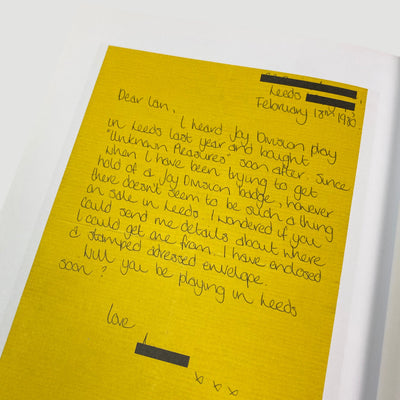 Leeds
February 18th 1980
Dear Ian,
I heard Joy Division play
in Leeds last year and bought
"Unknown Pleasures" soon after. Since
when I have been trying to get
hold of a Joy Division badge, however
there doesn't seem to be such a thing
on sale in Leeds. I wondered if you
could send me details about where
I could get one from. I have enclosed
a stamped adressed envelope.
Will you be playing in Leeds
soon?
love
x x x